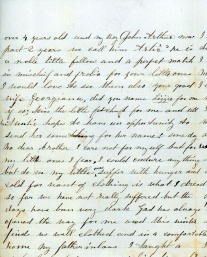 over 4 years old and my boy John Arthur was 1
part 2 years we call him Artie he is
a noble little fellow and a perfect match
in mischief and frolic for your little ones
I would love to see them also your good
wife Georgianna, did you name Lizzie for me
if so, Kiss the little for me and tell
hope to have an opportunity to
send her something for her name some day
No dear Brother I care not for myself but for
my little ones I fear, I could endure anything
but to see my little suffer with hunger and
cold for want of clothing is what I dread
so far we have not really suffered but the
days have been very dark God has always
opened the way for me and this winter
finds us well clothed and in a comfortable
home my father in law bought a